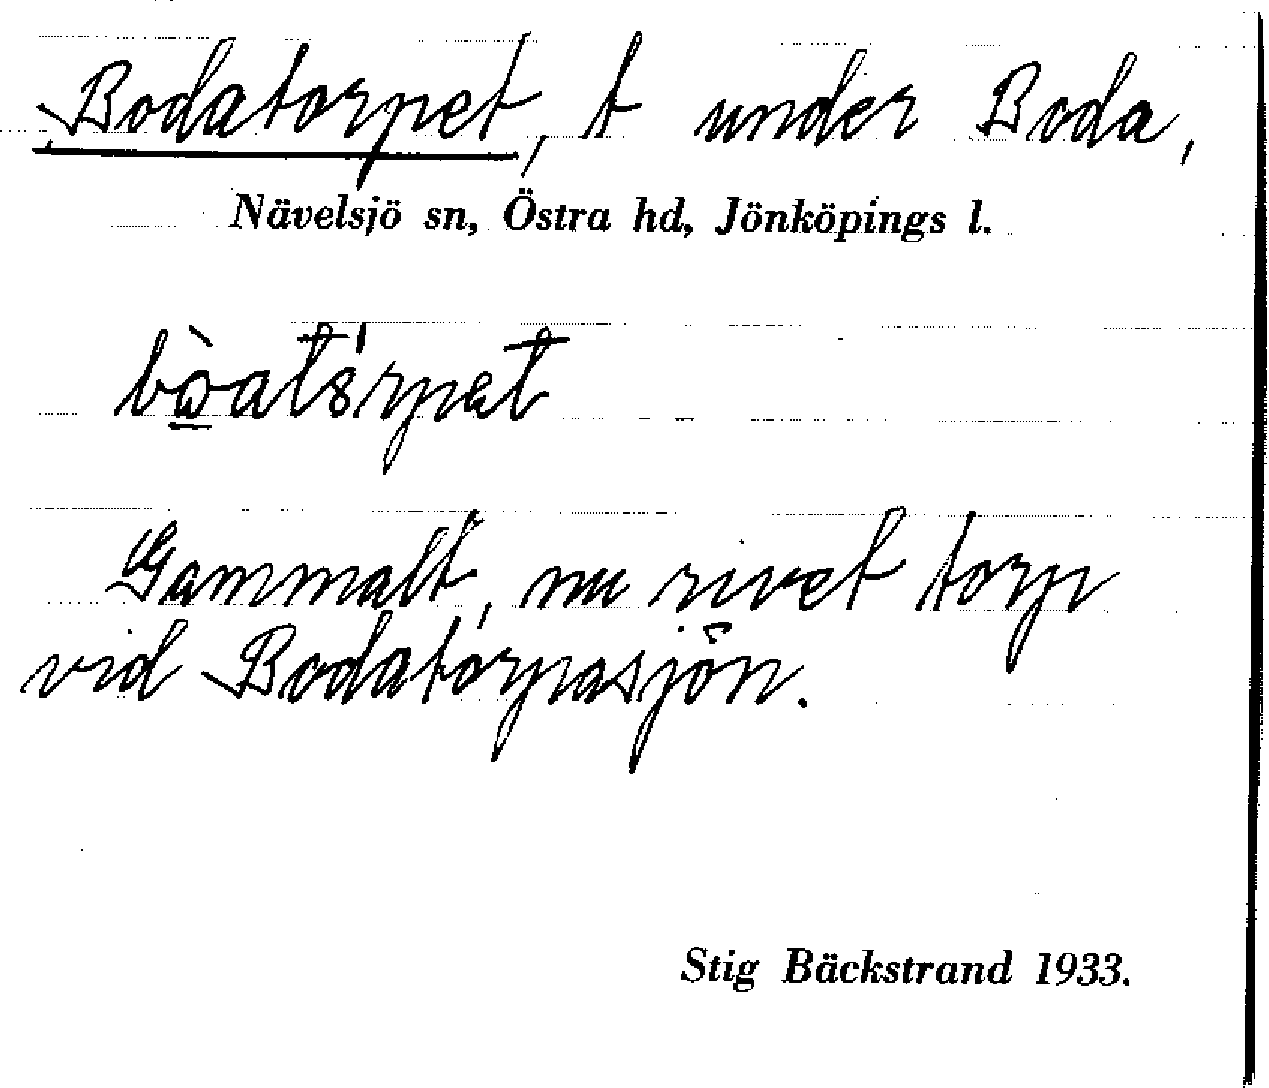 Bodatorpet, t under Boda,
Nävelsjö sn, Östra hd, Jönköpings l.
Gammalt, nu rivet torp
vid Bodatorpasjön.
Stig Bäckstrand 1933.